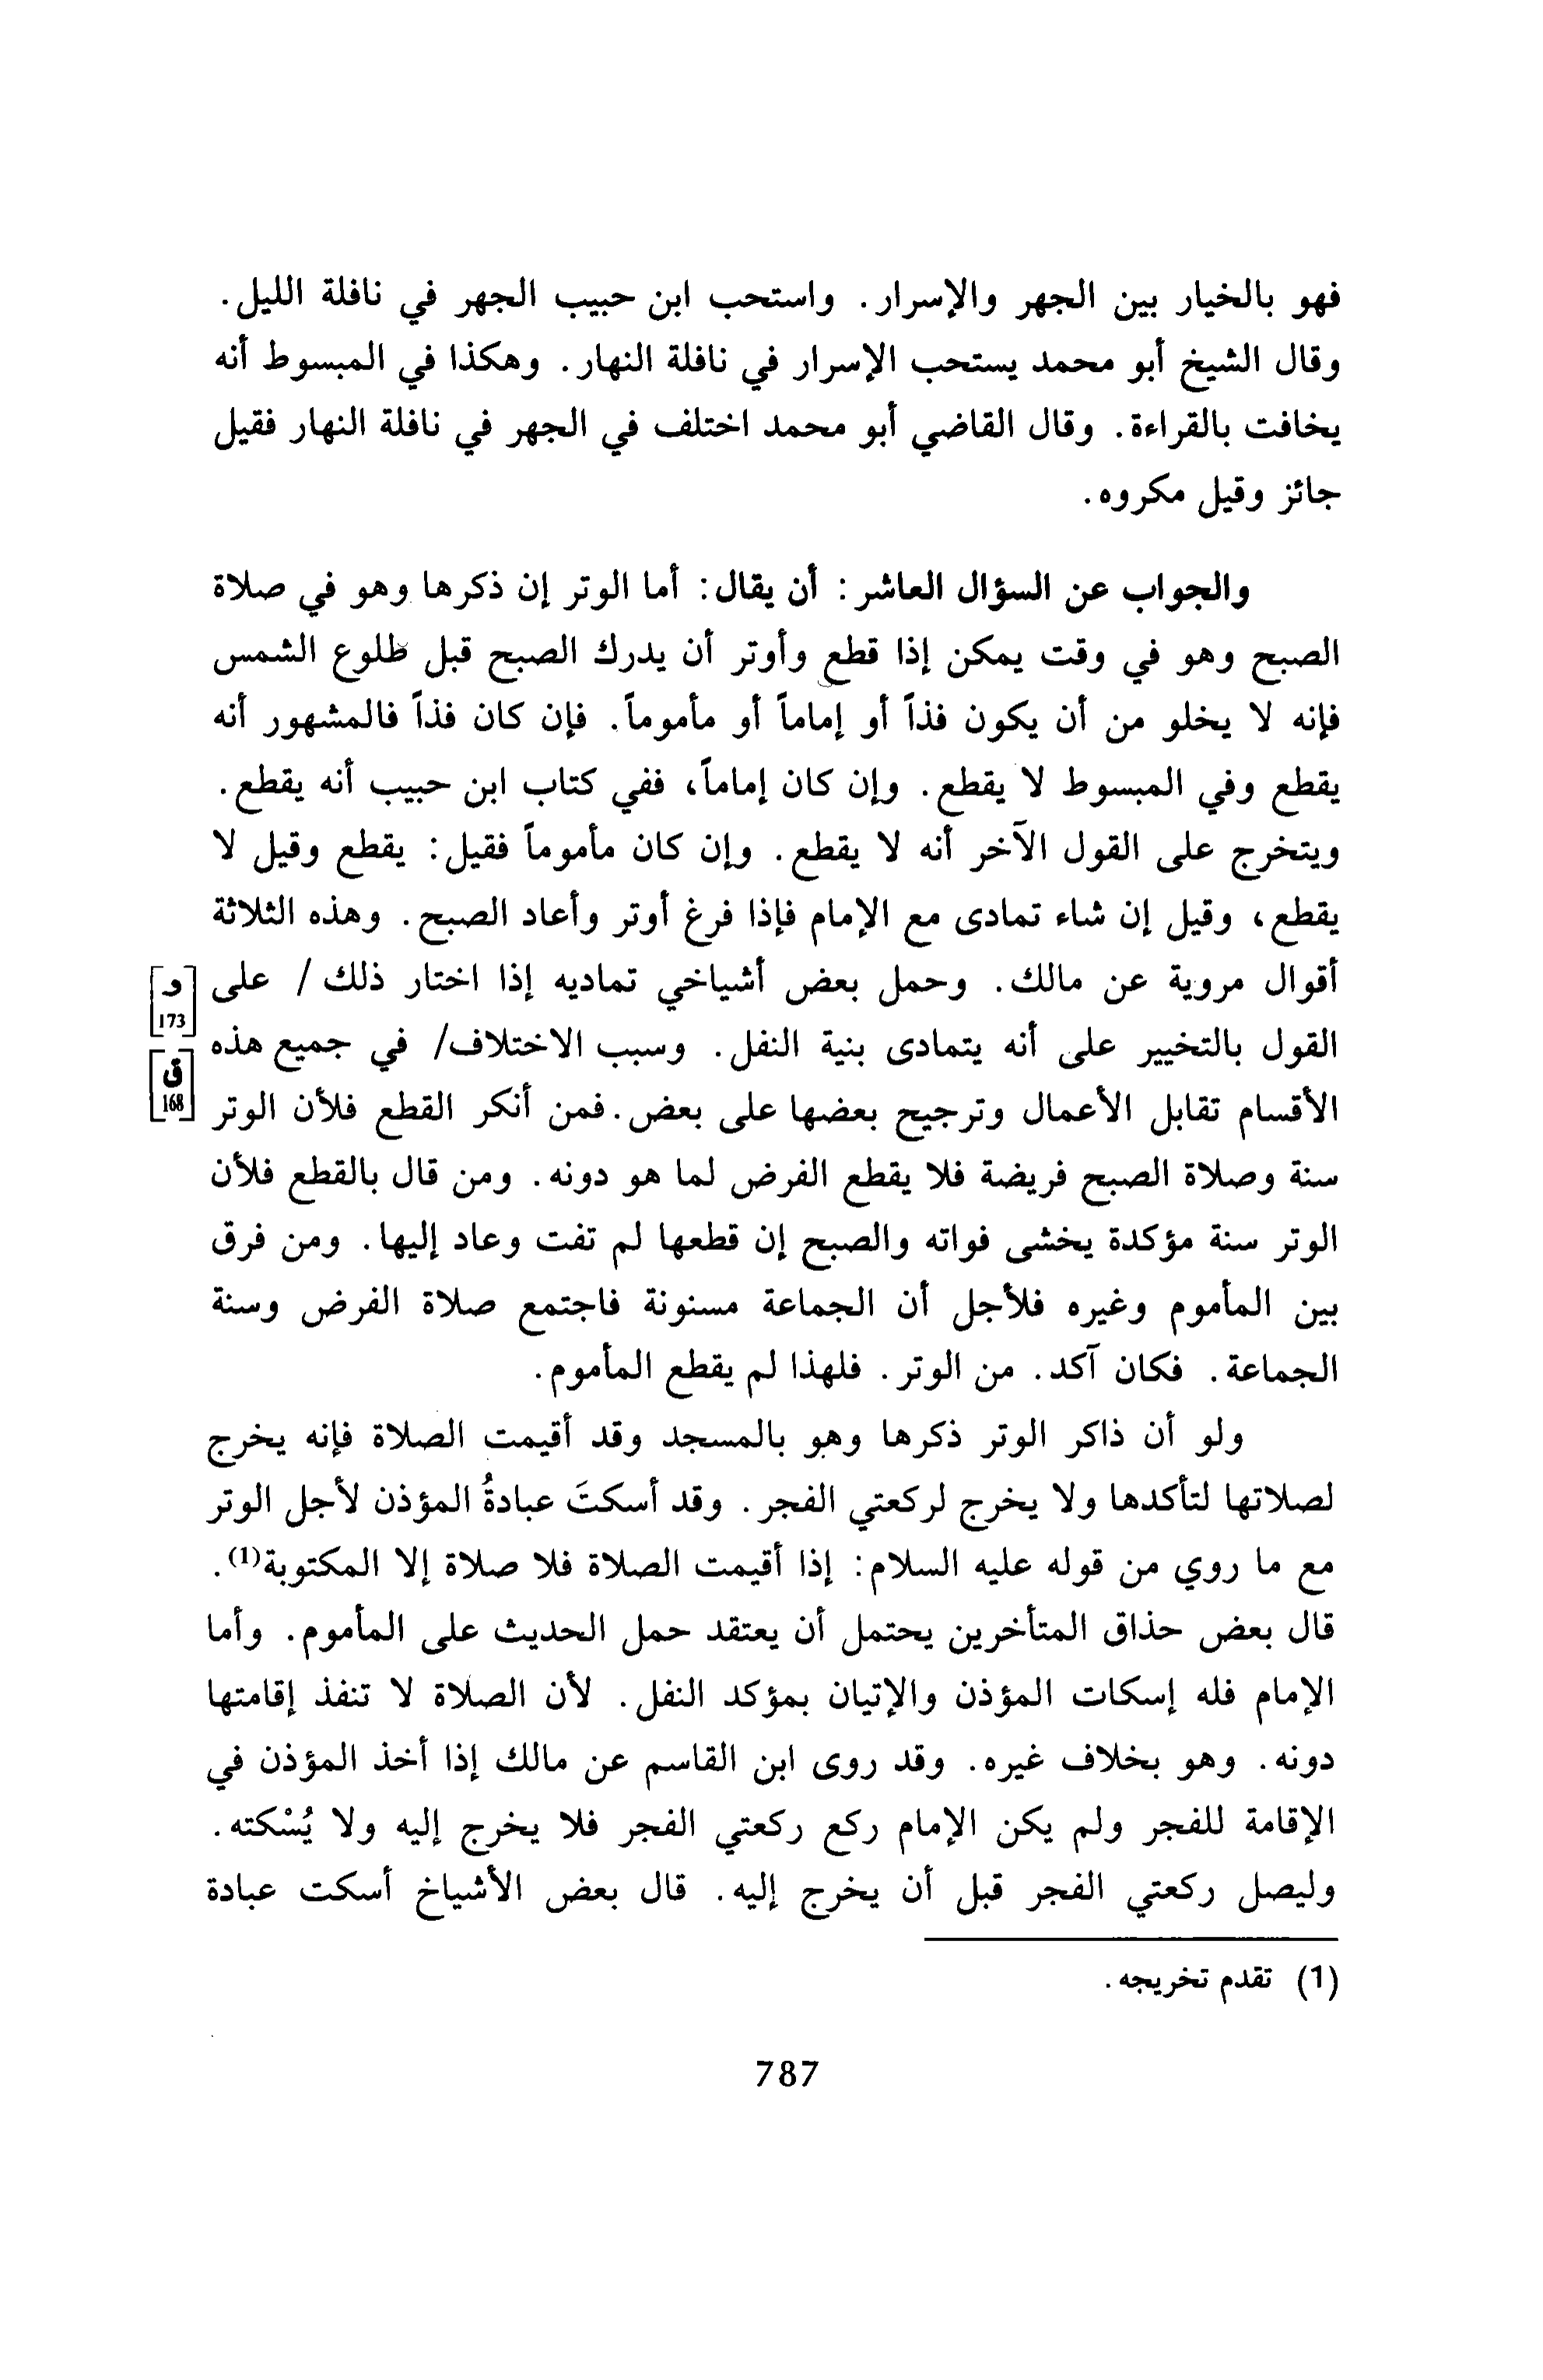 فهو بالخيار بين الجهر والإسرار. واستحب ابن حبيب الجهر في نافلة الليل.
وقال الشيخ أبو محمد يستحب الإسرار في نافلة النهار. وهكذا في المبسوط أنه
يخافت بالقراءة. وقال القاضي أبو محمد اختلف في الجهر في نافلة النهار فقيل
جائز وقيل مكروه.
والجواب عن السؤال العاشر: أن يقال: أما الوتر إن ذكرها وهو في صلاة
الصبح وهو في وقت يمكن إذا قطع وأوتر أن يدرك الصبح قبل طلوع الشمس
فإنه لا يخلو من أن يكون فذاً أو إماماً أو مأموماً. فإن كان فذاً فالمشهور أنه
يقطع وفي المبسوط لا يقطع. وإن كان إماماً، ففي كتاب ابن حبيب أنه يقطع.
ويتخرج على القول الآخر أنه لا يقطع. وإن كان مأموماً فقيل: يقطع وقيل لا
يقطع، وقيل إن شاء تمادى مع الإمام فإذا فرغ أوتر وأعاد الصبح. وهذه الثلاثة
أقوال مروية عن مالك. وحمل بعض أشياخي تماديه إذا اختار ذلك / على
[و 173]
القول بالتخيير على أنه يتمادى بنية النفل. وسبب الاختلاف/ في جميع هذه
[ق 168]
الأقسام تقابل الأعمال وترجيح بعضها على بعض. فمن أنكر القطع فلأن الوتر
سنة وصلاة الصبح فريضة فلا يقطع الفرض لما هو دونه. ومن قال بالقطع فلأن
الوتر سنة مؤكدة يخشى فواته والصبح إن قطعها لم تفت وعاد إليها. ومن فرق
بين المأموم وغيره فلأجل أن الجماعة مسنونة فاجتمع صلاة الفرض وسنة
الجماعة. فكان آكد. من الوتر. فلهذا لم يقطع المأموم.
ولو أن ذاكر الوتر ذكرها وهو بالمسجد وقد أقيمت الصلاة فإنه يخرج
لصلاتها لتأكدها ولا يخرج لركعتي الفجر. وقد أسكتَ عبادةُ المؤذن لأجل الوتر
مع ما روي من قوله عليه السلام: إذا أقيمت الصلاة فلا صلاة إلا المكتوبة(1).
قال بعض حذاق المتأخرين يحتمل أن يعتقد حمل الحديث على المأموم. وأما
الإمام فله إسكات المؤذن والإتيان بمؤكد النفل. لأن الصلاة لا تنفذ إقامتها
دونه. وهو بخلاف غيره. وقد روى ابن القاسم عن مالك إذا أخذ المؤذن في
الإقامة للفجر ولم يكن الإمام ركع ركعتي الفجر فلا يخرج إليه ولا يُسْكته.
وليصل ركعتي الفجر قبل أن يخرج إليه. قال بعض الأشياخ أسكت عبادة
(1) تقدم تخريجه.
787